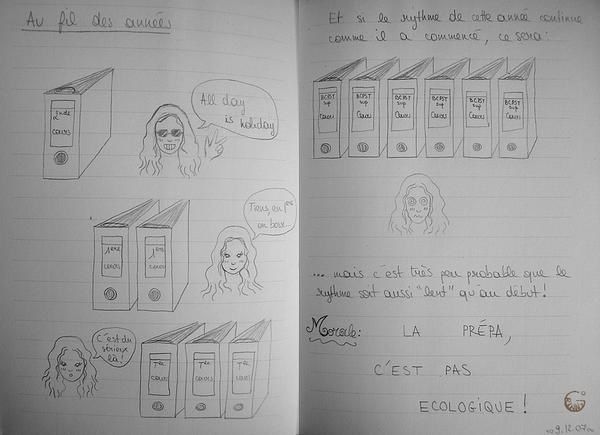 Au fil des années
2nde
cours
All day
is holiday
1ère
cours
1ère
cours
Tiens, en 1ère
on bosse...
C'est du
sérieux
là!
Tle
cours
Tle
cours
Tle
cours
Et si le rythme de cette année continue
comme il a commencé, ce sera:
BCPST
sup
Cours
BCPST
sup
Cours
BCPST
sup
Cours
BCPST
sup
Cours
BCPST
sup
Cours
BCPST
sup
Cours
... mais c'est très peu probable que le
rythme soit aussi "lent" qu'au début!
Morale: LA PRÉPA,
C'EST PAS
ECOLOGIQUE!
09.12.07